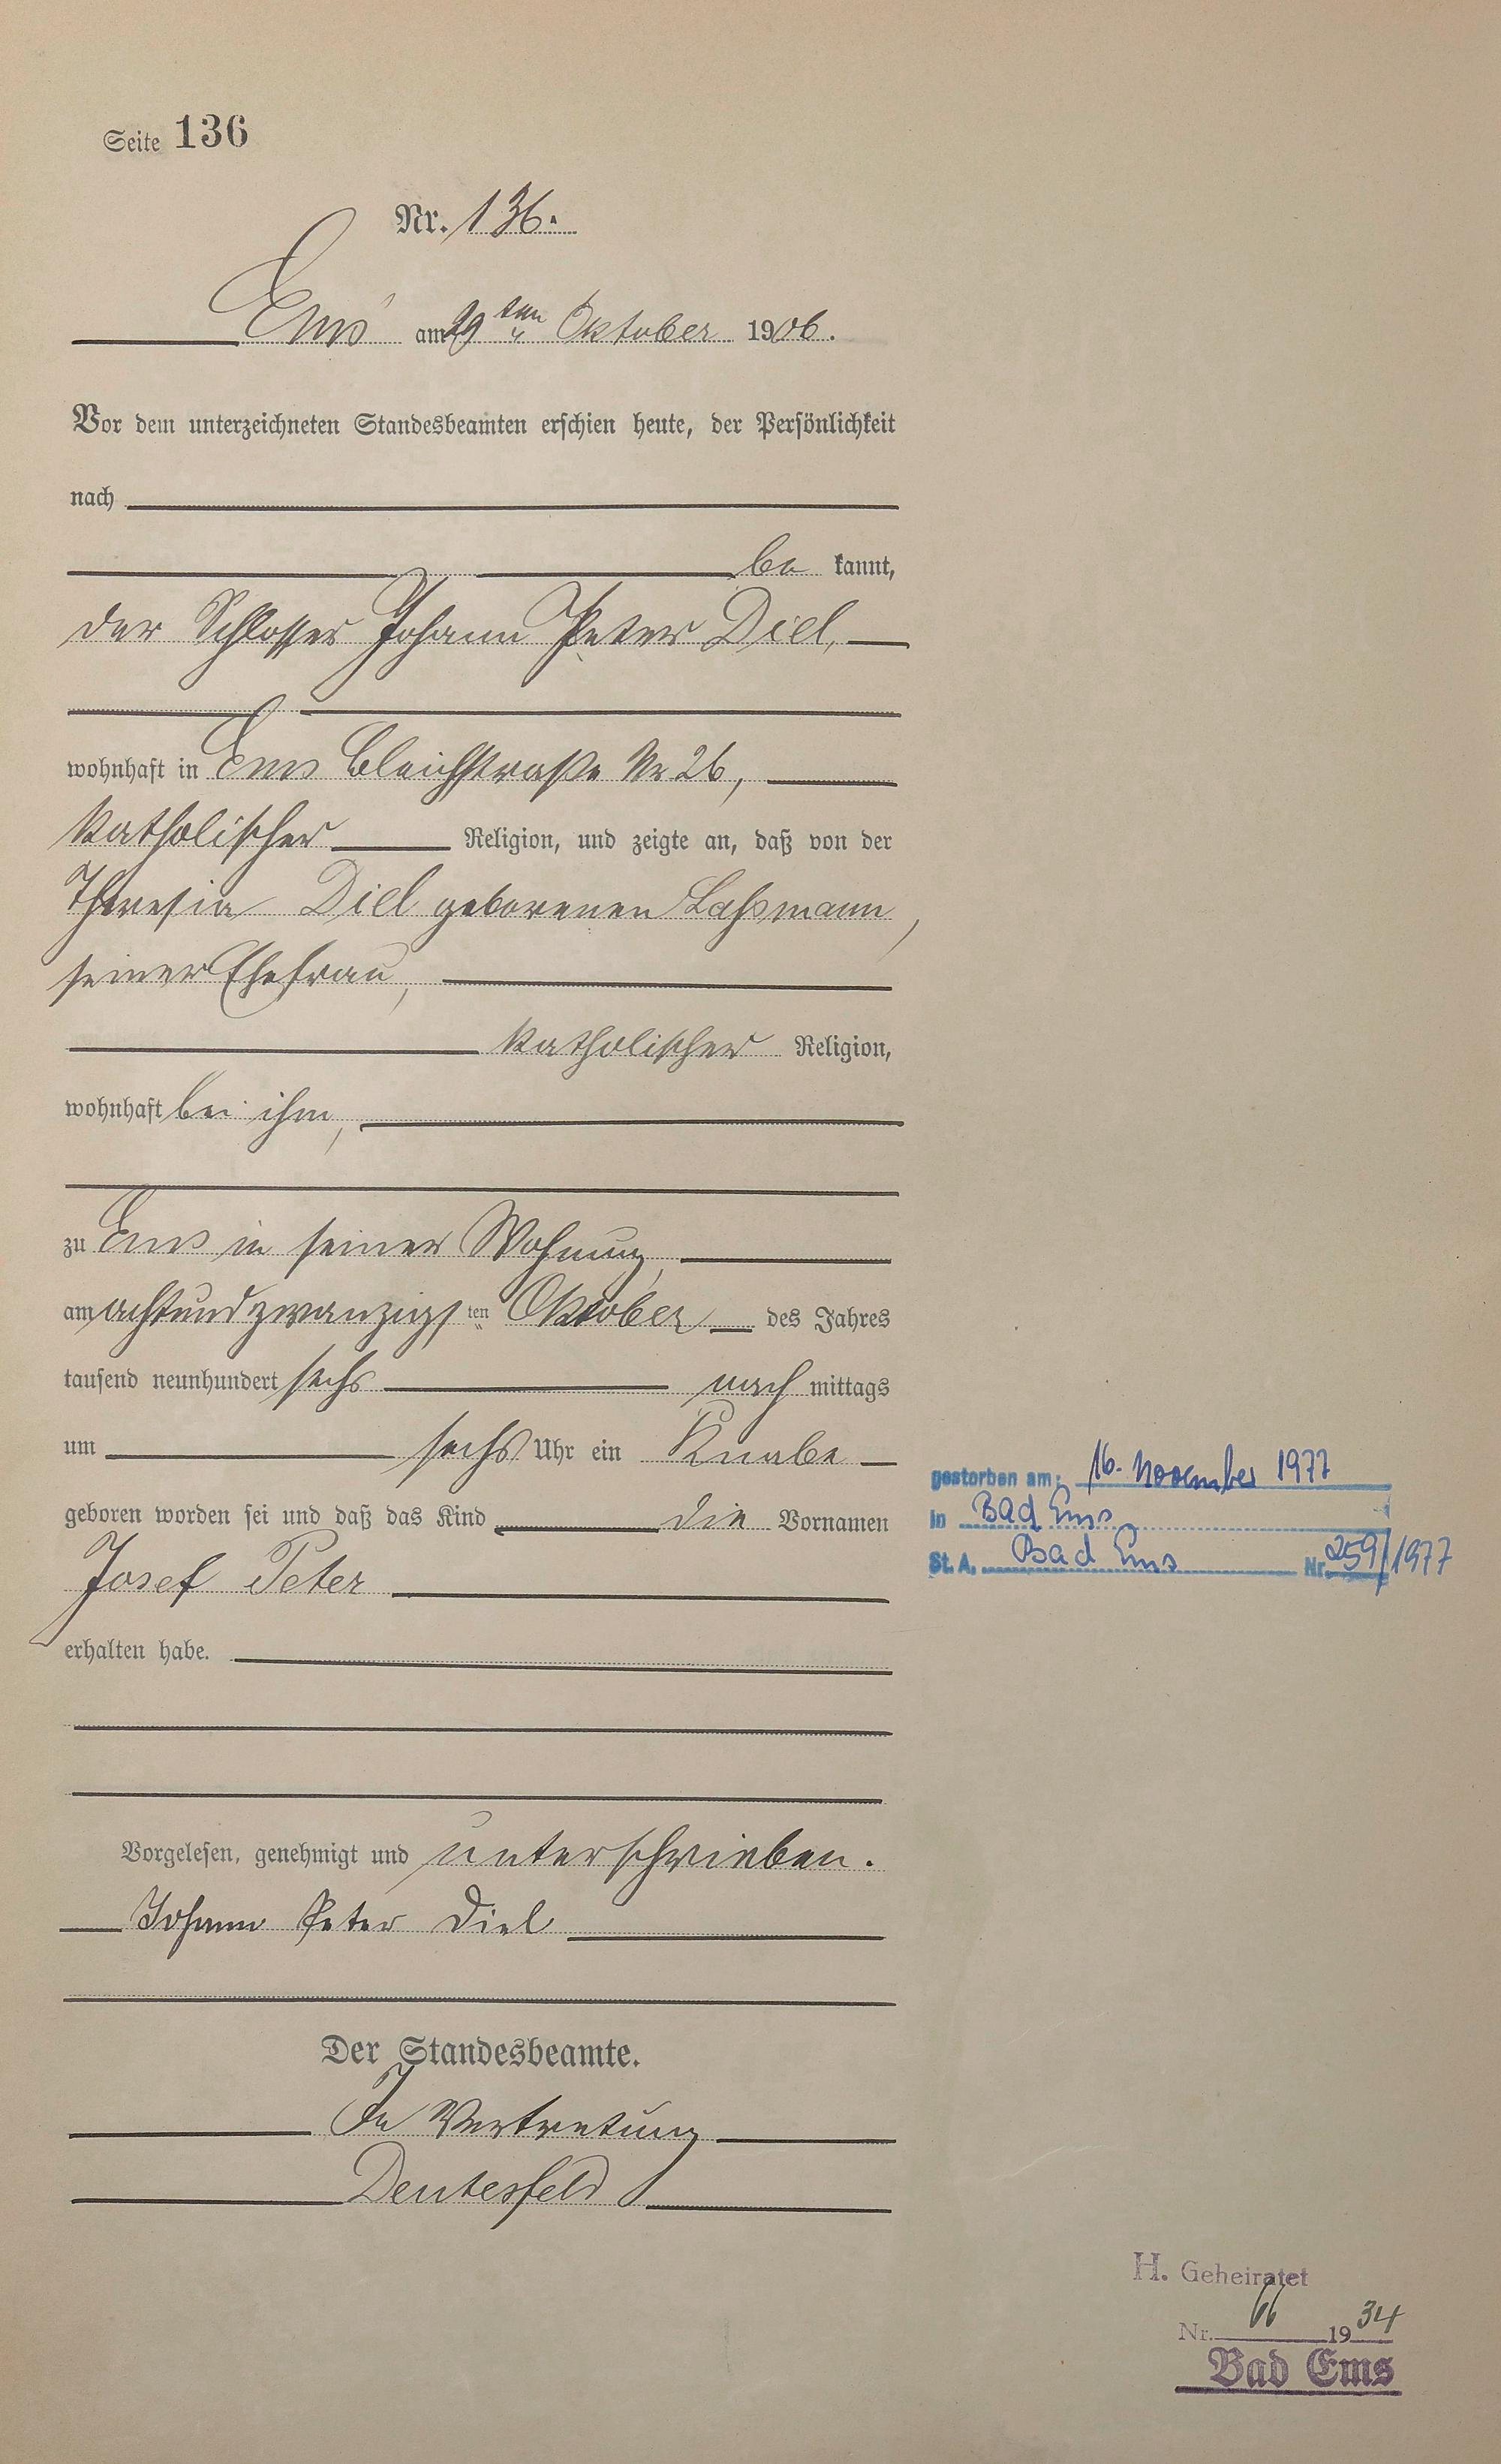 Seite 136
Nr. 136.
Ems am 29ten Oktober 1906.
Vor dem unterzeichneten Standesbeamten erschien heute, der Persönlichkeit
nach
be kannt,
der Schlosser Johann Peter Diel,
wohnhaft in Ems Bleichstraße Nr 26,
katholischer Religion, und zeigte an, daß von der
Theresia Diel geborenen Laßmann,
seiner Ehefrau,
katholischer Religion,
wohnhaft bei ihm,
zu Ems in seiner Wohnung,
am achtundzwanzigsten Oktober des Jahres
tausend neunhundert sechs nach mittags
um sechs Uhr ein Knabe
geboren worden sei und daß das Kind die Vornamen
Josef Peter
erhalten habe.
Vorgelesen, genehmigt und unterschrieben.
Johann Peter Diel
Der Standesbeamte.
In Vertretung
Deutesfeld
gestorben am: 16. November 1977
in Bad Ems
St. A. Bad Ems Nr. 259/1977
H. Geheiratet
Nr. 66 1934
Bad Ems